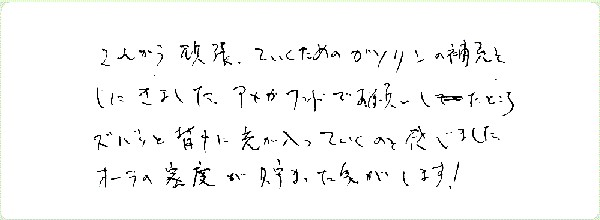 これから頑張っていくためのガソリンの補充を
しにきました。アメカフンドでお願いしたところ
ズバッと背中に光が入っていくのを感じました
オーラの密度が貯まった気がします!